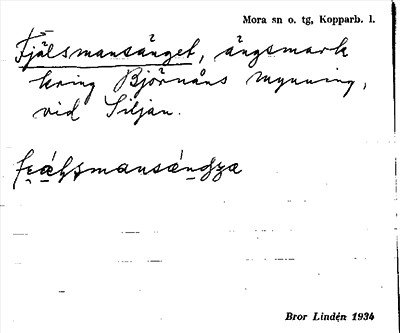 Mora sn o. tg, Kopparb. l.
Fjälsmansänget, ängsmark
kring Björnåns mynning,
vid Siljan.
Bror Lindén 1934